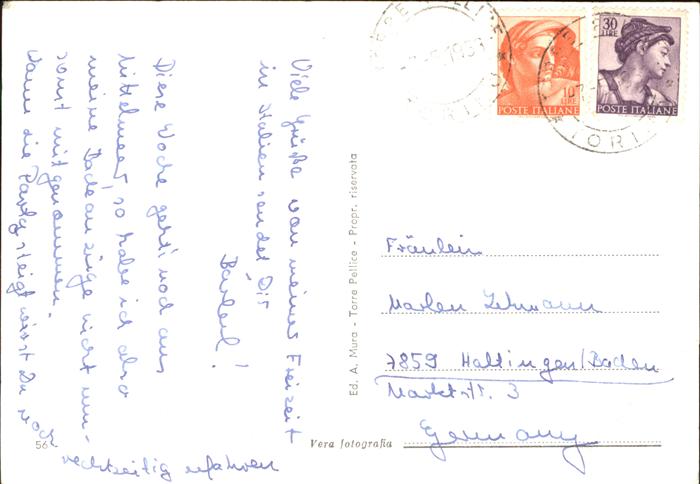 Viele Grüße von meiner Freizeit
in Italien sendet Dir
Bärbel!
Diese Woche geht's noch ans
Mittelmeer, so habe ich also
meine Badeanzüge nicht um-
sonst mitgenommen.
Wann die Party steigt wirst Du noch
rechtzeitig erfahren
56
Vera fotografia
Ed. A. Mura - Torre Pellice - Propr. riservata
10
LIRE
POSTE ITALIANE
30
LIRE
POSTE ITALIANE
Fräulein
Marlen Lehmann
7859 Haltingen/Baden
Marktstr. 3
Germany